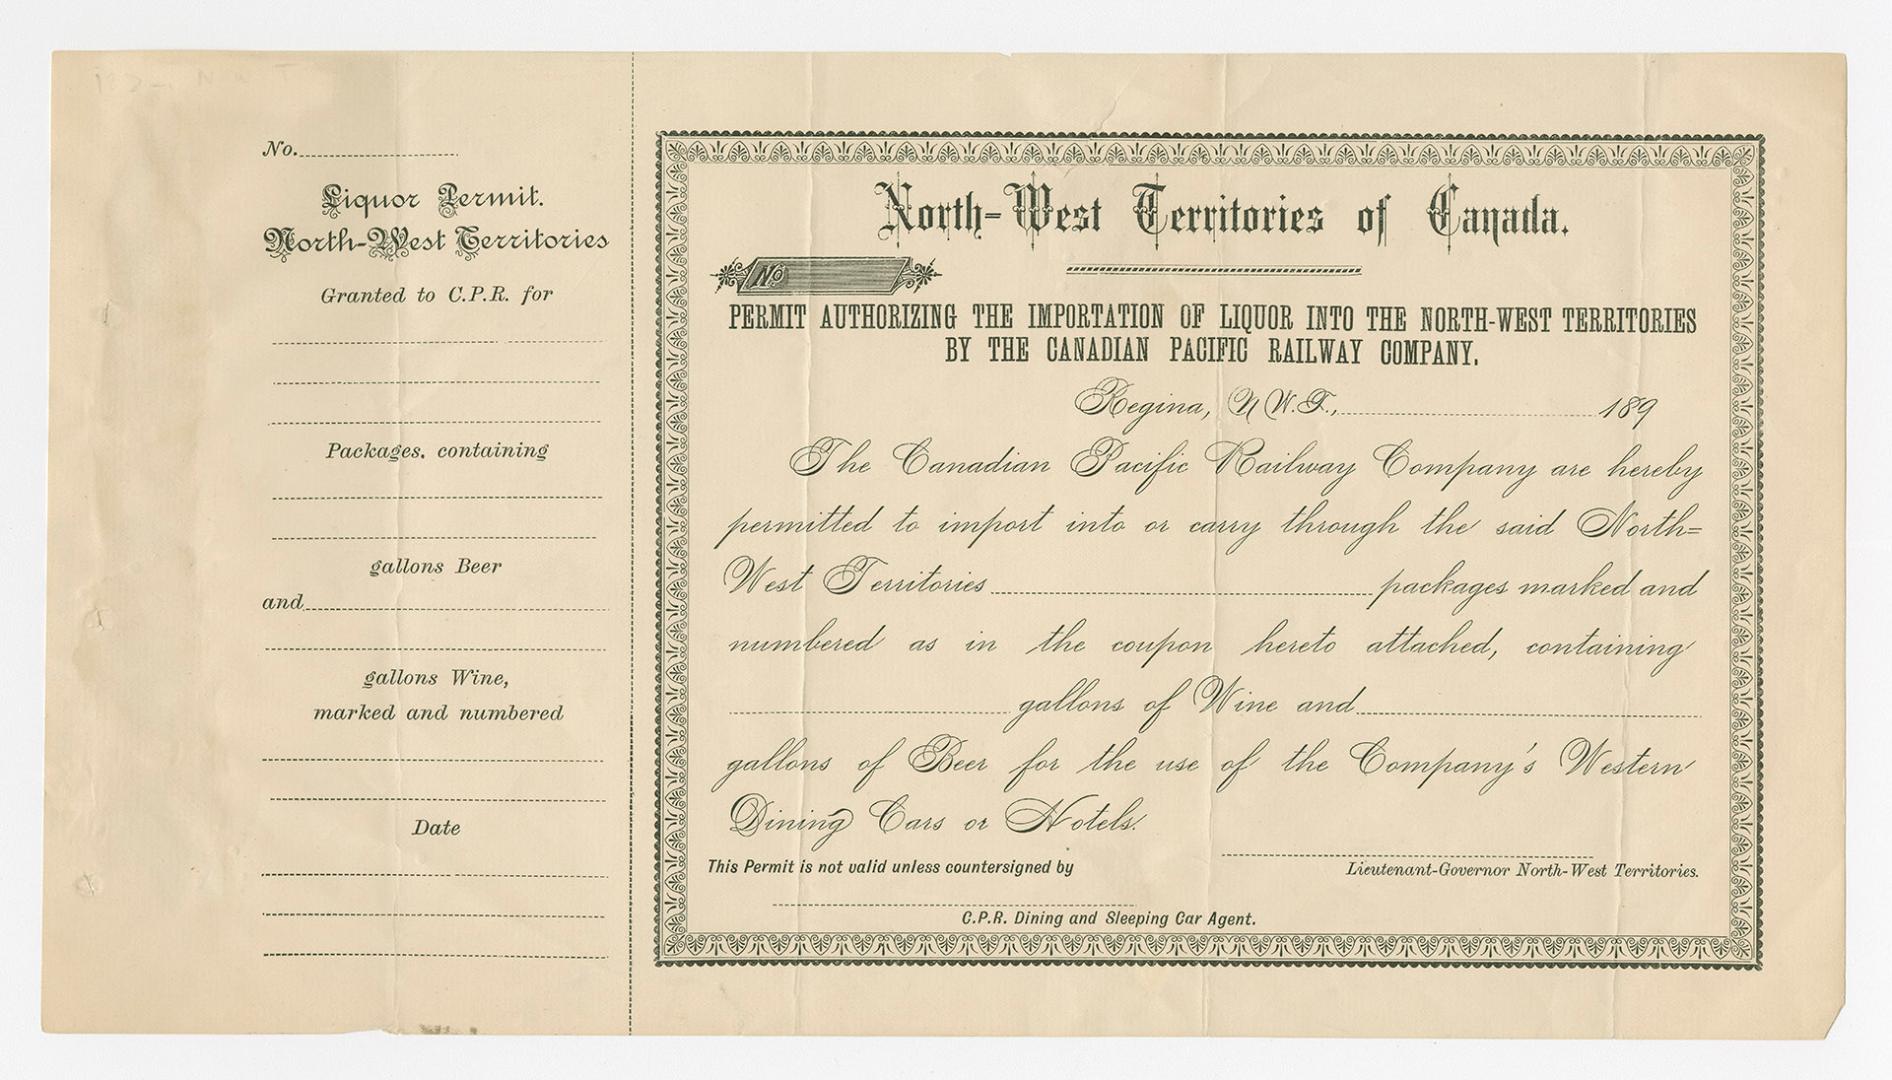 No.
Liquor Permit.
North-West Territories
Granted to C.P.R. for
Packages. containing
gallons Beer
and
gallons Wine,
marked and numbered
Date
North-West Territories of Canada.
No
PERMIT AUTHORIZING THE IMPORTATION OF LIQUOR INTO THE NORTH-WEST TERRITORIES
BY THE CANADIAN PACIFIC RAILWAY COMPANY.
Regina, N.W.T., 189
The Canadian Pacific Railway Company are hereby
permitted to import into or carry through the said North=
West Territories packages marked and
numbered as in the coupon hereto attached, containing
gallons of Wine and
gallons of Beer for the use of the Company's Western
Dining Cars or Hotels.
This Permit is not valid unless countersigned by
Lieutenant-Governor North-West Territories.
C.P.R. Dining and Sleeping Car Agent.